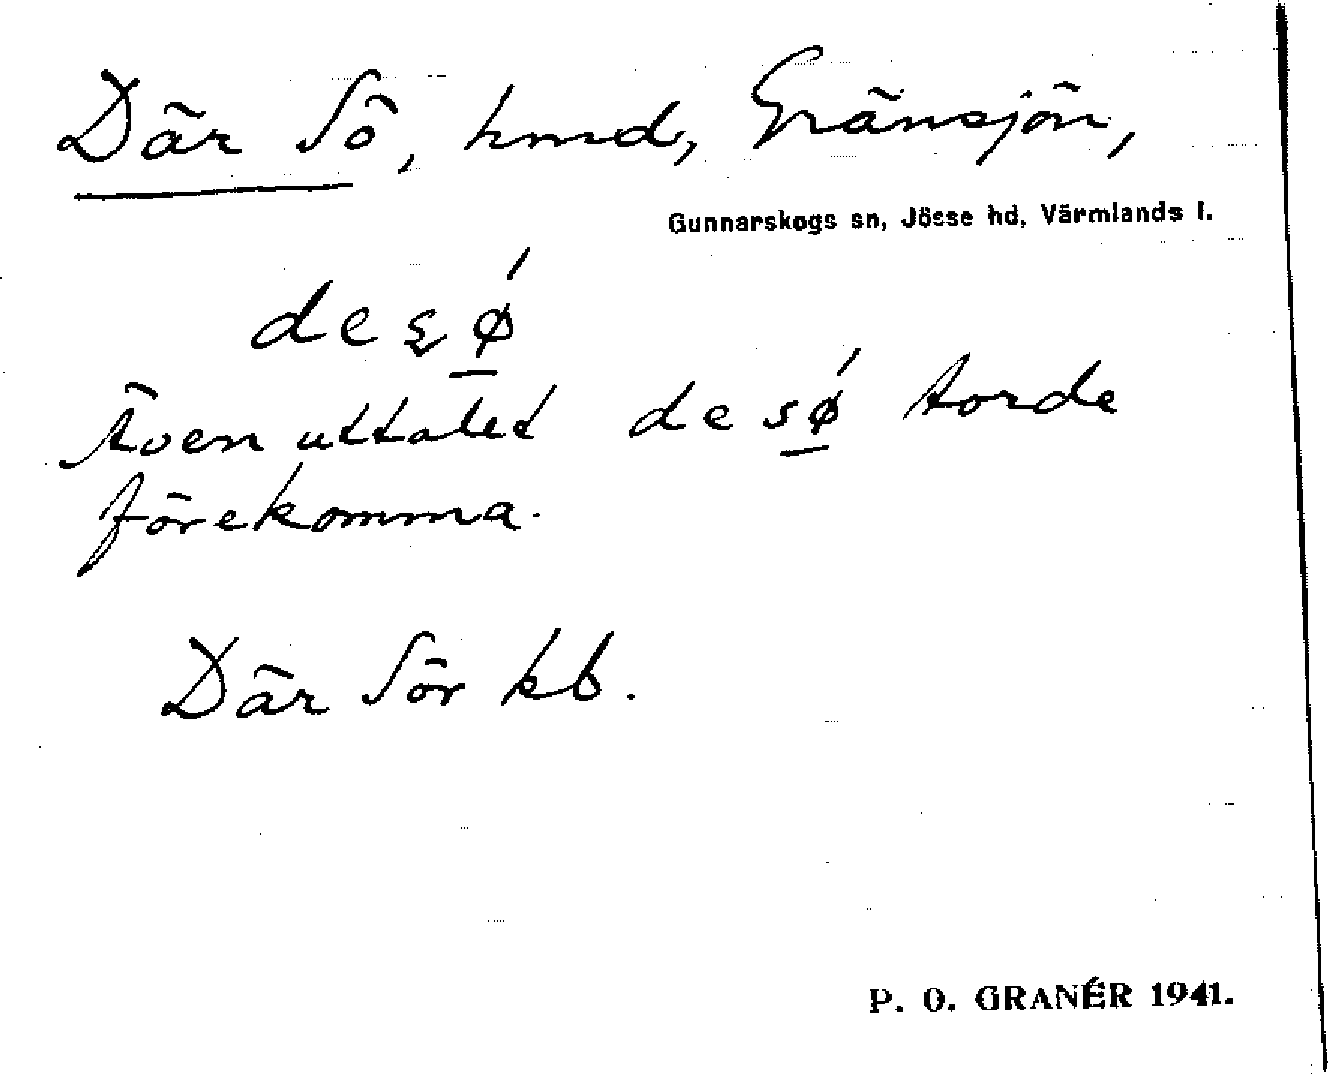 Där Sö, hmd, Gränsjön,
Gunnarskogs sn, Jösse hd, Värmlands l.
de ʂø´
Även uttalet de sø´ torde
förekomma.
Där Sör kb.
P. O. GRANÉR 1941.